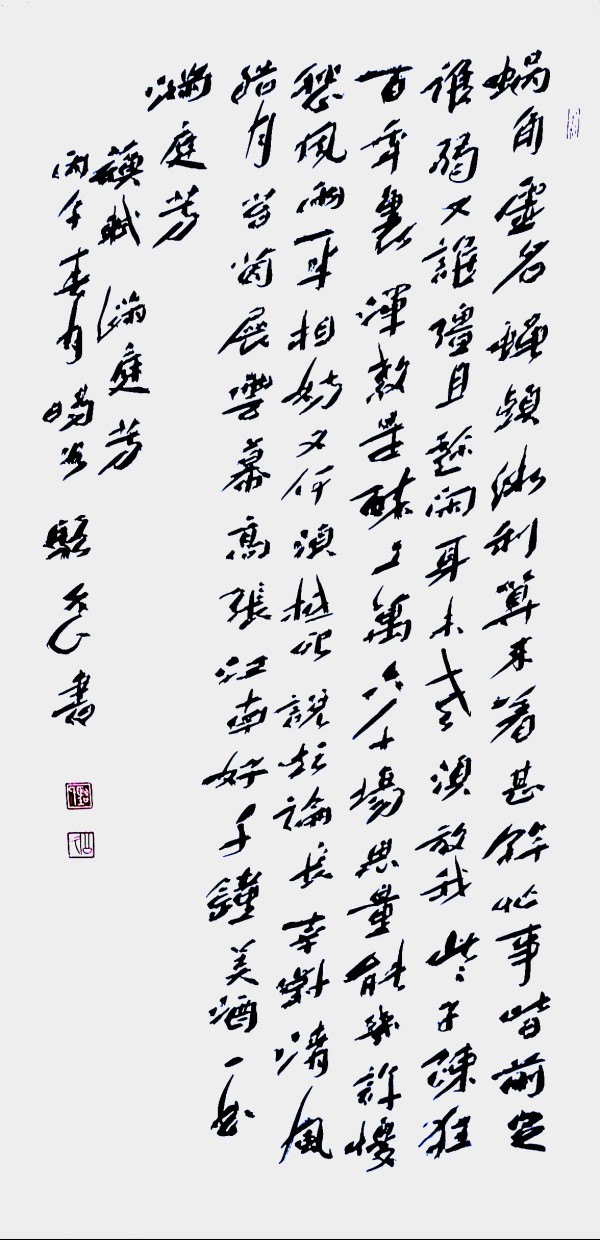 蝸角虛名蠅頭微利算来着甚幹忙事皆前定
誰弱又誰彊且趁閑身未老須放我些子疎狂
百年裏渾教是醉三萬六千場思量能幾許憂
愁風雨一半相妨又何須抵死說短論長幸對清風
皓月苔茵展雲幕高張江南好千鍾美酒一曲
滿庭芳
蘇軾 滿庭芳
丙午春月 書